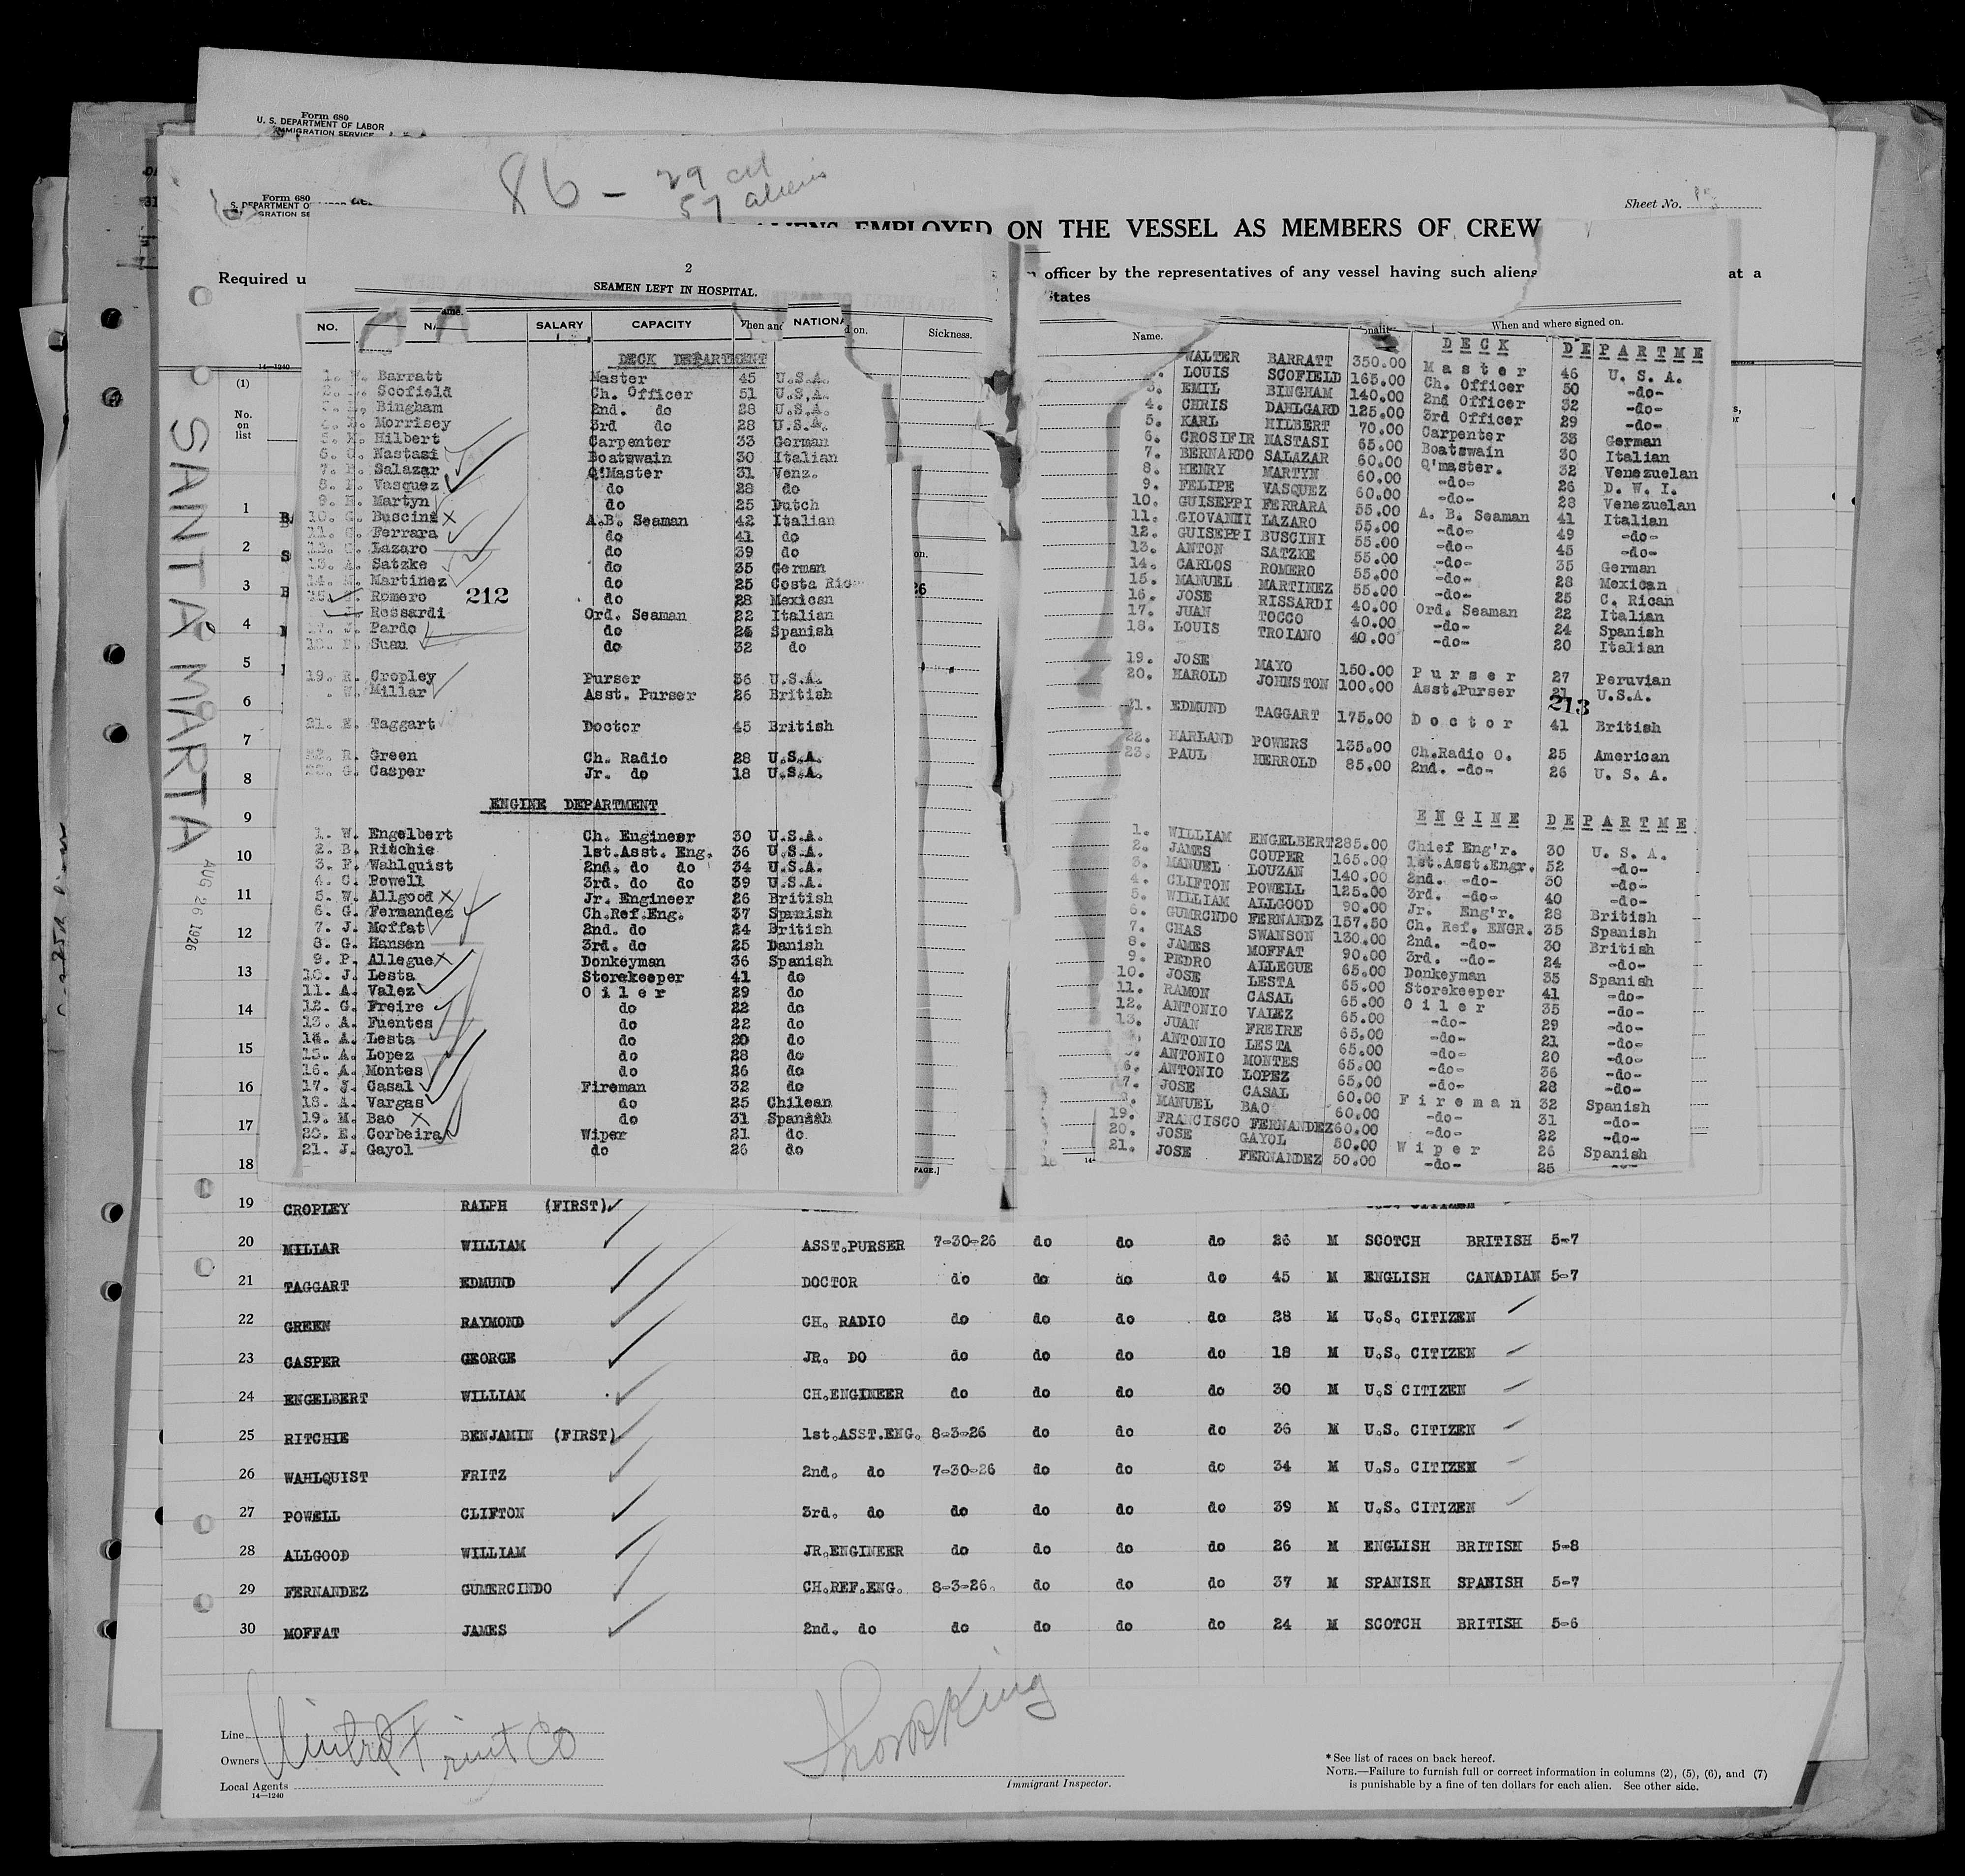 Form 680
U. S. DEPARTMENT OF LABOR
IMMIGRATION SERVICE
Form 680
S. DEPARTMENT OF
GRATION SE
86 - 29 cit
57 aliens
Sheet No.
ALIENS EMPLOYED ON THE VESSEL AS MEMBERS OF CREW
Required u
officer by the representatives of any vessel having such aliens
at a
States
SANTA MARTA
AUG 26 1926
14—1240
(1)
No.
on
list
2
SEAMEN LEFT IN HOSPITAL.
NO. NA SALARY CAPACITY When and NATIONA d on. Sickness.
DECK DEPARTMENT
1. W. Barratt Master 45 U.S.A.
2. L. Scofield Ch. Officer 51 U.S.A.
3. E. Bingham 2nd. do 28 U.S.A.
Morrisey 3rd do 28 U.S.A.
5. K. Hilbert Carpenter 33 German
6. C. Nastasi Boatswain 30 Italian
7. B. Salazar Q'Master 31 Venz.
8. F. Vasquez do 28 do
9. H. Martyn do 25 Dutch
10. G. Buscini A.B. Seaman 42 Italian
11. G. Ferrara do 41 do
12. G. Lazaro do 39 do
13. A. Satzke do 35 German
14. M. Martinez do 25 Costa Ric
15. Romero 212 do 28 Mexican
J. Rossardi Ord. Seaman 22 Italian
17. J. Pardo do 24 Spanish
18. Suau do 32 do
19. R. Cropley Purser 36 U.S.A.
W. Millar Asst. Purser 26 British
21. E. Taggart Doctor 45 British
22. R. Green Ch. Radio 28 U.S.A.
23. G. Casper Jr. do 18 U.S.A.
ENGINE DEPARTMENT
1. W. Engelbert Ch. Engineer 30 U.S.A.
2. B. Ritchie 1st.Asst. Eng. 36 U.S.A.
3. F. Wahlquist 2nd. do do 34 U.S.A.
4. C. Powell 3rd. do do 39 U.S.A.
5. W. Allgood Jr. Engineer 26 British
6. G. Fernandez Ch.Ref.Eng. 37 Spanish
7. J. Moffat 2nd. do 24 British
8. G. Hansen 3rd. do 25 Danish
9. P. Allegue Donkeyman 36 Spanish
10. J. Lesta Storekeeper 41 do
11. A. Valez O i l e r 29 do
12. G. Freire do 22 do
13. A. Fuentes do 22 do
14. A. Lesta do 20 do
15. A. Lopez do 28 do
16. A. Montes do 26 do
17. J. Casal Fireman 32 do
18. A. Vargas do 25 Chilean
19. M. Bao do 31 Spanish
20. E. Corbeira Wiper 21 do
21. J. Gayol do 26 do
Name. When and where signed on.
D E C K D E P A R T M E
WALTER BARRATT 350.00 M a s t e r 46 U. S. A.
LOUIS SCOFIELD 165.00 Ch. Officer 50 -do-
3. EMIL BINGHAM 140.00 2nd Officer 32 -do-
4. CHRIS DAHLGARD 125.00 3rd Officer 29 -do-
5. KARL HILBERT 70.00 Carpenter 33 German
6. CROSIFIR NASTASI 65.00 Boatswain 30 Italian
7. BERNARDO SALAZAR 60.00 Q'master. 32 Venezuelan
8. HENRY MARTYN 60.00 -do- 26 D. W. I.
9. FELIPE VASQUEZ 60.00 -do- 28 Venezuelan
10. GUISEPPI FERRARA 55.00 A. B. Seaman 41 Italian
11. GIOVANNI LAZARO 55.00 -do- 49 -do-
12. GUISEPPI BUSCINI 55.00 -do- 45 -do-
13. ANTON SATZKE 55.00 -do- 35 German
14. CARLOS ROMERO 55.00 -do- 28 Mexican
15. MANUEL MARTINEZ 55.00 -do- 25 C. Rican
16. JOSE RISSARDI 40.00 Ord. Seaman 22 Italian
17. JUAN TOCCO 40.00 -do- 24 Spanish
18. LOUIS TROIANO 40.00 -do- 20 Italian
19. JOSE MAYO 150.00 P u r s e r 27 Peruvian
20. HAROLD JOHNSTON 100.00 Asst.Purser 21 U.S.A.
213
21. EDMUND TAGGART 175.00 D o c t o r 41 British
22. HARLAND POWERS 135.00 Ch.Radio O. 25 American
23. PAUL HERROLD 85.00 2nd. -do- 26 U. S. A.
E N G I N E D E P A R T M E
1. WILLIAM ENGELBERT 285.00 Chief Eng'r. 30 U. S. A.
2. JAMES COUPER 165.00 1st.Asst.Engr. 52 -do-
3. MANUEL LOUZAN 140.00 2nd. -do- 30 -do-
4. CLIFTON POWELL 125.00 3rd. -do- 40 -do-
5. WILLIAM ALLGOOD 90.00 Jr. Eng'r. 28 British
6. GUMRCNDO FERNANDZ 157.50 Ch. Ref. ENGR. 35 Spanish
7. CHAS SWANSON 130.00 2nd. -do- 30 British
8. JAMES MOFFAT 90.00 3rd. -do- 24 -do-
9. PEDRO ALLEGUE 65.00 Donkeyman 35 Spanish
10. JOSE LESTA 65.00 Storekeeper 41 -do-
11. RAMON CASAL 65.00 O i l e r 35 -do-
12. ANTONIO VALEZ 65.00 -do- 29 -do-
13. JUAN FREIRE 65.00 -do- 21 -do-
ANTONIO LESTA 65.00 -do- 20 -do-
ANTONIO MONTES 65.00 -do- 36 -do-
6. ANTONIO LOPEZ 65.00 -do- 28 -do-
7. JOSE CASAL 60.00 F i r e m a n 32 Spanish
MANUEL BAO 60.00 -do- 31 -do-
19. FRANCISCO FERNANDEZ 60.00 -do- 22 -do-
20. JOSE GAYOL 50.00 W i p e r 26 Spanish
21. JOSE FERNANDEZ 50.00 -do- 25
1
2
3
4
5
6
7
8
9
10
11
12
13
14
15
16
17
18
PAGE.]
19 CROPLEY RALPH (FIRST) U.S. CITIZEN
20 MILLAR WILLIAM ASST.PURSER 7-30-26 do do do 26 M SCOTCH BRITISH 5-7
21 TAGGART EDMUND DOCTOR do do do do 45 M ENGLISH CANADIAN 5-7
22 GREEN RAYMOND CH. RADIO do do do do 28 M U.S. CITIZEN
23 CASPER GEORGE JR. DO do do do do 18 M U.S. CITIZEN
24 ENGELBERT WILLIAM CH.ENGINEER do do do do 30 M U.S CITIZEN
25 RITCHIE BENJAMIN (FIRST) 1st.ASST.ENG. 8-3-26 do do do 36 M U.S. CITIZEN
26 WAHLQUIST FRITZ 2nd. do 7-30-26 do do do 34 M U.S. CITIZEN
27 POWELL CLIFTON 3rd. do do do do do 39 M U.S. CITIZEN
28 ALLGOOD WILLIAM JR.ENGINEER do do do do 26 M ENGLISH BRITISH 5-8
29 FERNANDEZ GUMERCINDO CH.REF.ENG. 8-3-26. do do do 37 M SPANISH SPANISH 5-7
30 MOFFAT JAMES 2nd. do do do do do 24 M SCOTCH BRITISH 5-6
Line
Owners United Fruit Co
Local Agents
14—1240
Immigrant Inspector.
*See list of races on back hereof.
NOTE.—Failure to furnish full or correct information in columns (2), (5), (6), and (7)
is punishable by a fine of ten dollars for each alien. See other side.